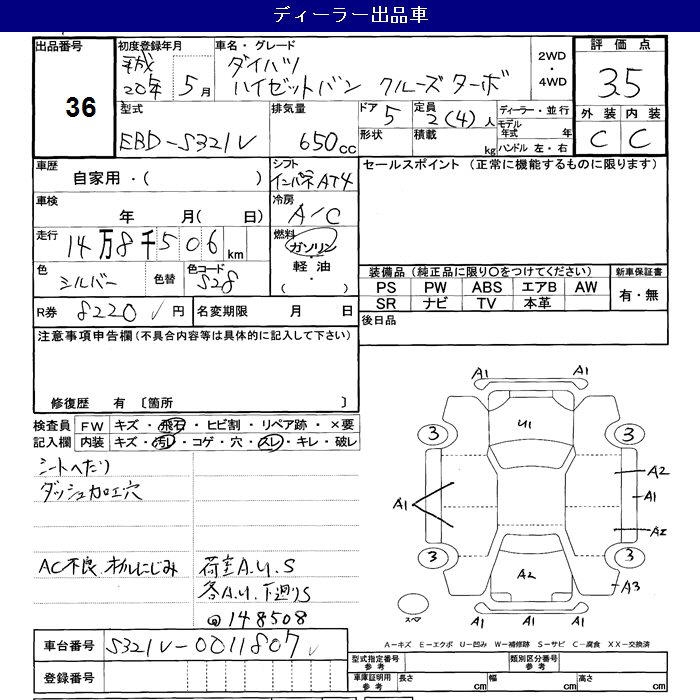 ディーラー出品車
出品番号 36
初度登録年月 平成20年 5月
車名・グレード ダイハツ
ハイゼットバン クルーズターボ
2WD・4WD
評価点 3.5
型式 EBD-S321V
排気量 650cc
ドア 5
形状
定員 2(4)人
積載 kg
ディーラー・並行
モデル年式 年
ハンドル 左・右
外装 C
内装 C
車歴 自家用・( )
シフト インパネAT4
セールスポイント (正常に機能するものに限ります)
車検 年 月( 日)
冷房 A/C
走行 14万8千506km
燃料 ガソリン・軽油・
色 シルバー 色替
色コード S28
装備品 (純正品に限り○をつけてください)
新車保証書
PS PW ABS エアB AW
有・無
SR ナビ TV 本革
R券 8220円
名変期限 月 日
後日品
注意事項申告欄(不具合内容等は具体的に記入して下さい)
修復歴 有 〔箇所 〕
検査員記入欄
FW キズ・飛石・ヒビ割・リペア跡・×要
内装 キズ・汚レ・コゲ・穴・スレ・キレ・破レ
シートへたり
ダッシュ加工穴
AC不良 オイルにじみ
荷室A.U.S
各A.U 下廻りS
@148508
A1 A1
3 U1 3
A2
A1 A1
A2
3 A2 3
A3
スペア
A1 A1 A1
A-キズ E-エクボ U-凹み W-補修跡 S-サビ C-腐食 XX-交換済
車台番号 S321V-0011807
登録番号
型式指定番号 参考
類別区分番号 参考
車庫証明用 参考
長さ cm 幅 cm 高さ cm